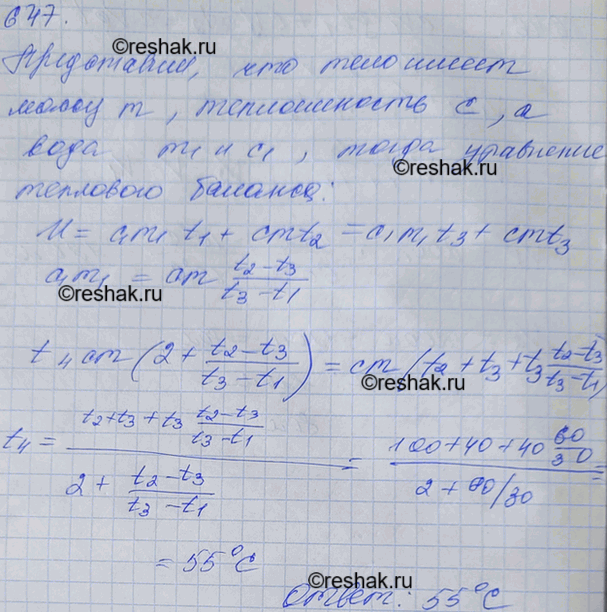 647.
©reshak.ru
Представим, что тело имеет
массу m, теплоемкость c, а
вода m₁ и c₁, тогда уравнение
©reshak.ru
теплового баланса:
U = c₁m₁ t₁ + cmt₂ = c₁m₁t₃ + cmt₃
c₁m₁ = cm (t₂-t₃)/(t₃-t₁)
©reshak.ru
t₄cm(2 + (t₂-t₃)/(t₃-t₁)) = cm(t₂ + t₃ + t₃ (t₂-t₃)/(t₃-t₁))
©reshak.ru
t₄ = (t₂+t₃ + t₃ (t₂-t₃)/(t₃-t₁))/(2 + (t₂-t₃)/(t₃-t₁)) = (100+40+40 60/30)/(2+60/30) =
= 55°C
©reshak.ru
Ответ: 55°C